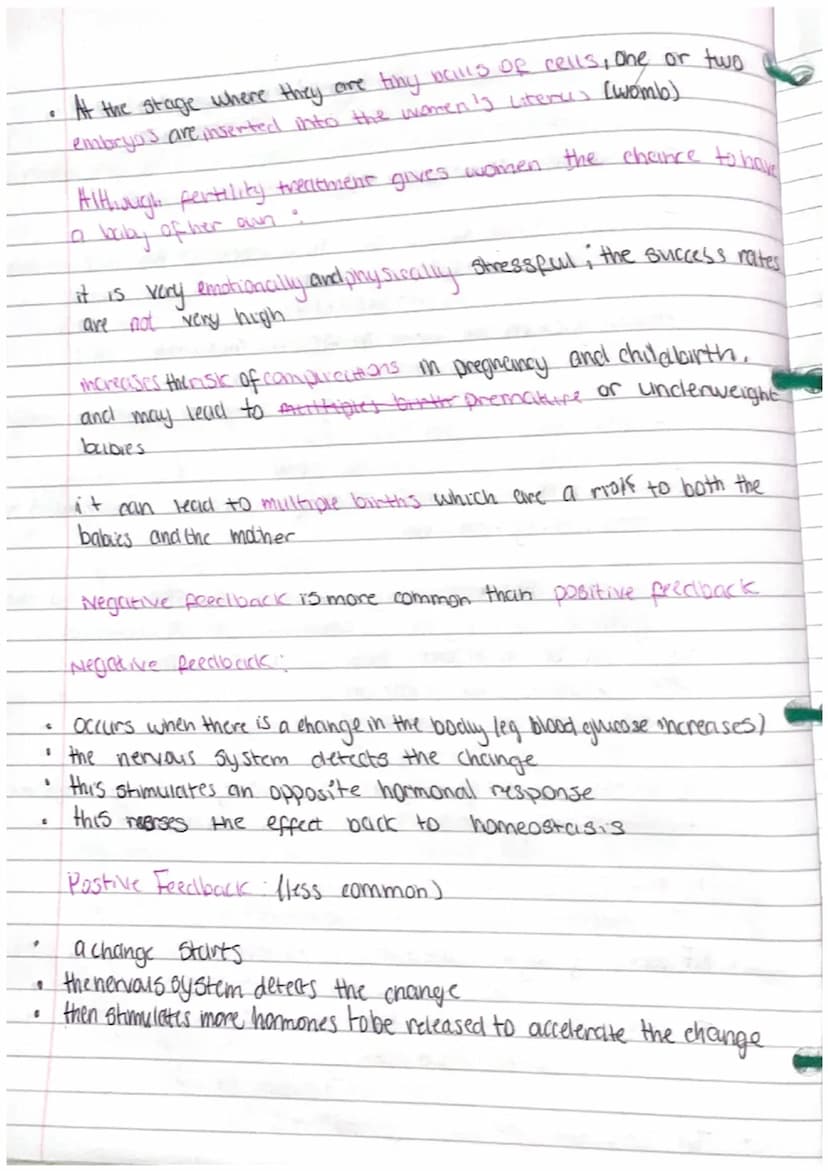 • At the stage where they are tiny balls of cells, one or two
embryos are inserted into the women's uterus (womb)
Although fertility treatment gives women the chance to have
a baby of her own :
it is very emotionally and physically stressful ; the success rates
are not very high
increases the risk of complications in pregnancy and childbirth,
and may lead to multiples birth premature or underweight
babies
it can lead to multiple births which are a risk to both the
babies and the mother
Negative feedback is more common than positive feedback
Negative feedback :
• occurs when there is a change in the body (eg blood glucose increases)
• the nervous system detects the change
• this stimulates an opposite hormonal response
• this the effect back to homeostasis
Postive Feedback : (less common)
• a change starts
• the nervous system detects the change
• then stimulates more hormones to be released to accelerate the change